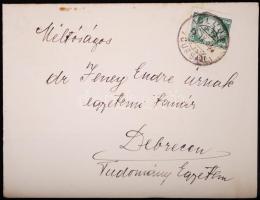 Méltóságos
dr Jeney Endre úrnak
egyetemi tanár
Debrecen
Tudomány Egyetem